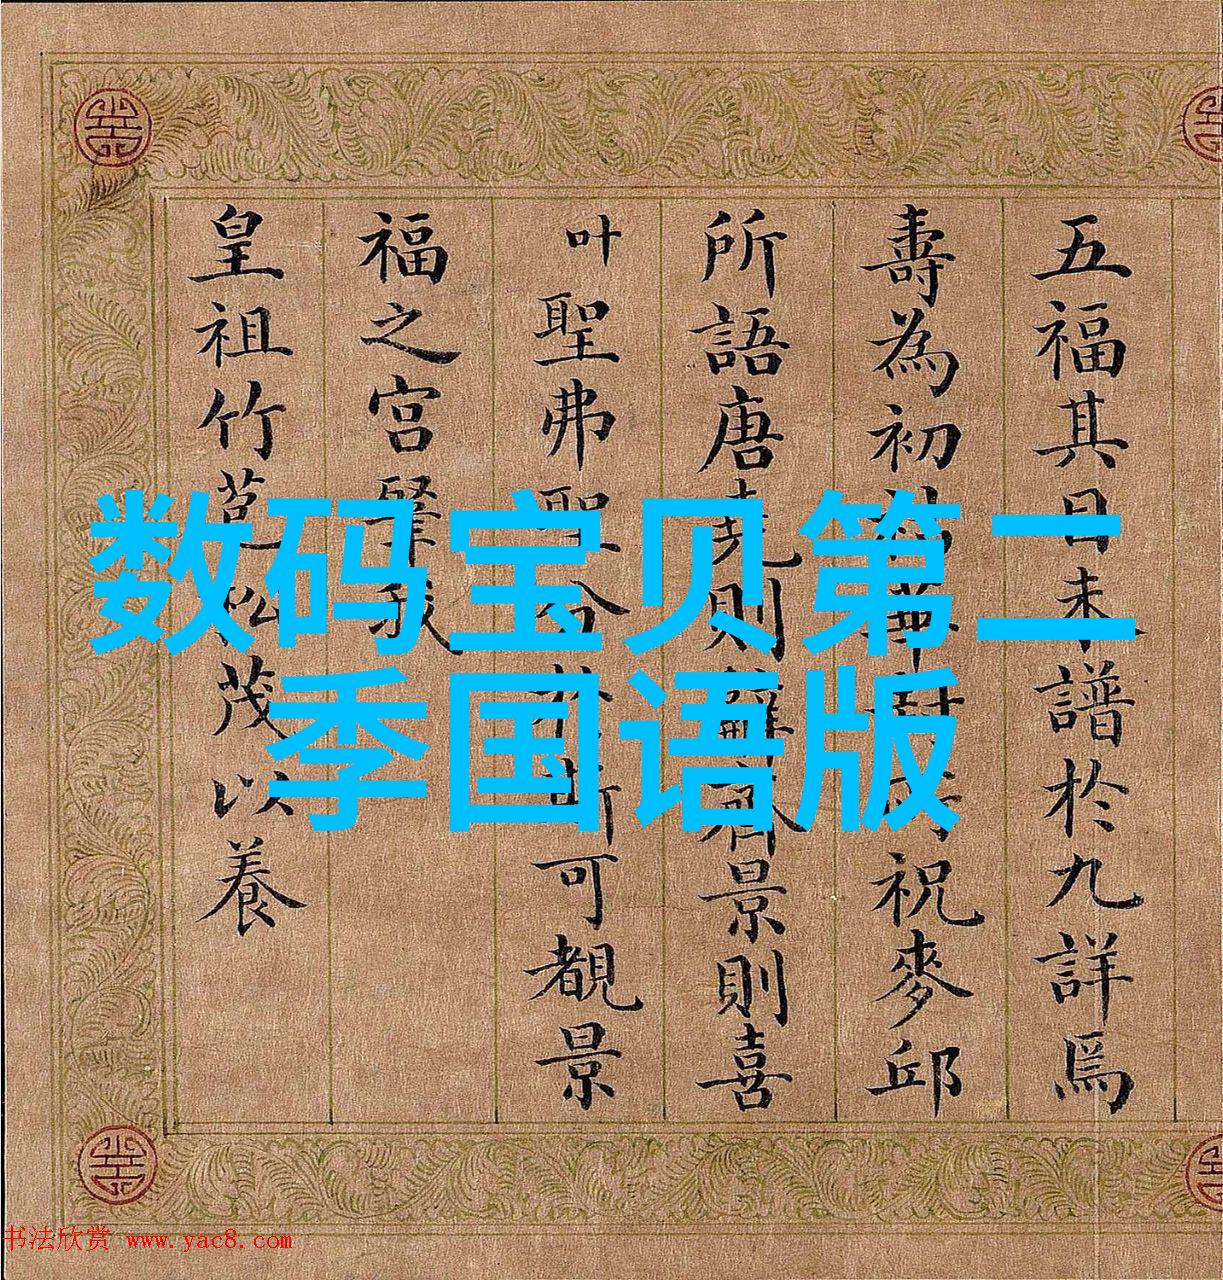 五福其目未譜於九詳爲
壽為初
祝麥邱
所語唐堯則
景則喜
叶
聖弗聖
可覩景
福之宮肇我
皇祖竹苞松茂以養
数码宝贝第二
季国语版
书法欣赏 www.yac8.com